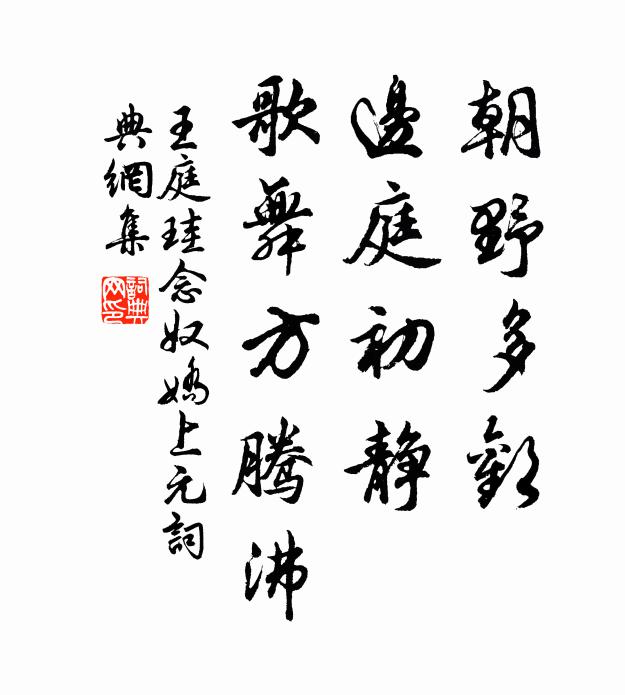 朝野多歡
邊庭初静
歌舞方騰沸
王庭珪念奴嬌上元詞
典網集
詞典
网印